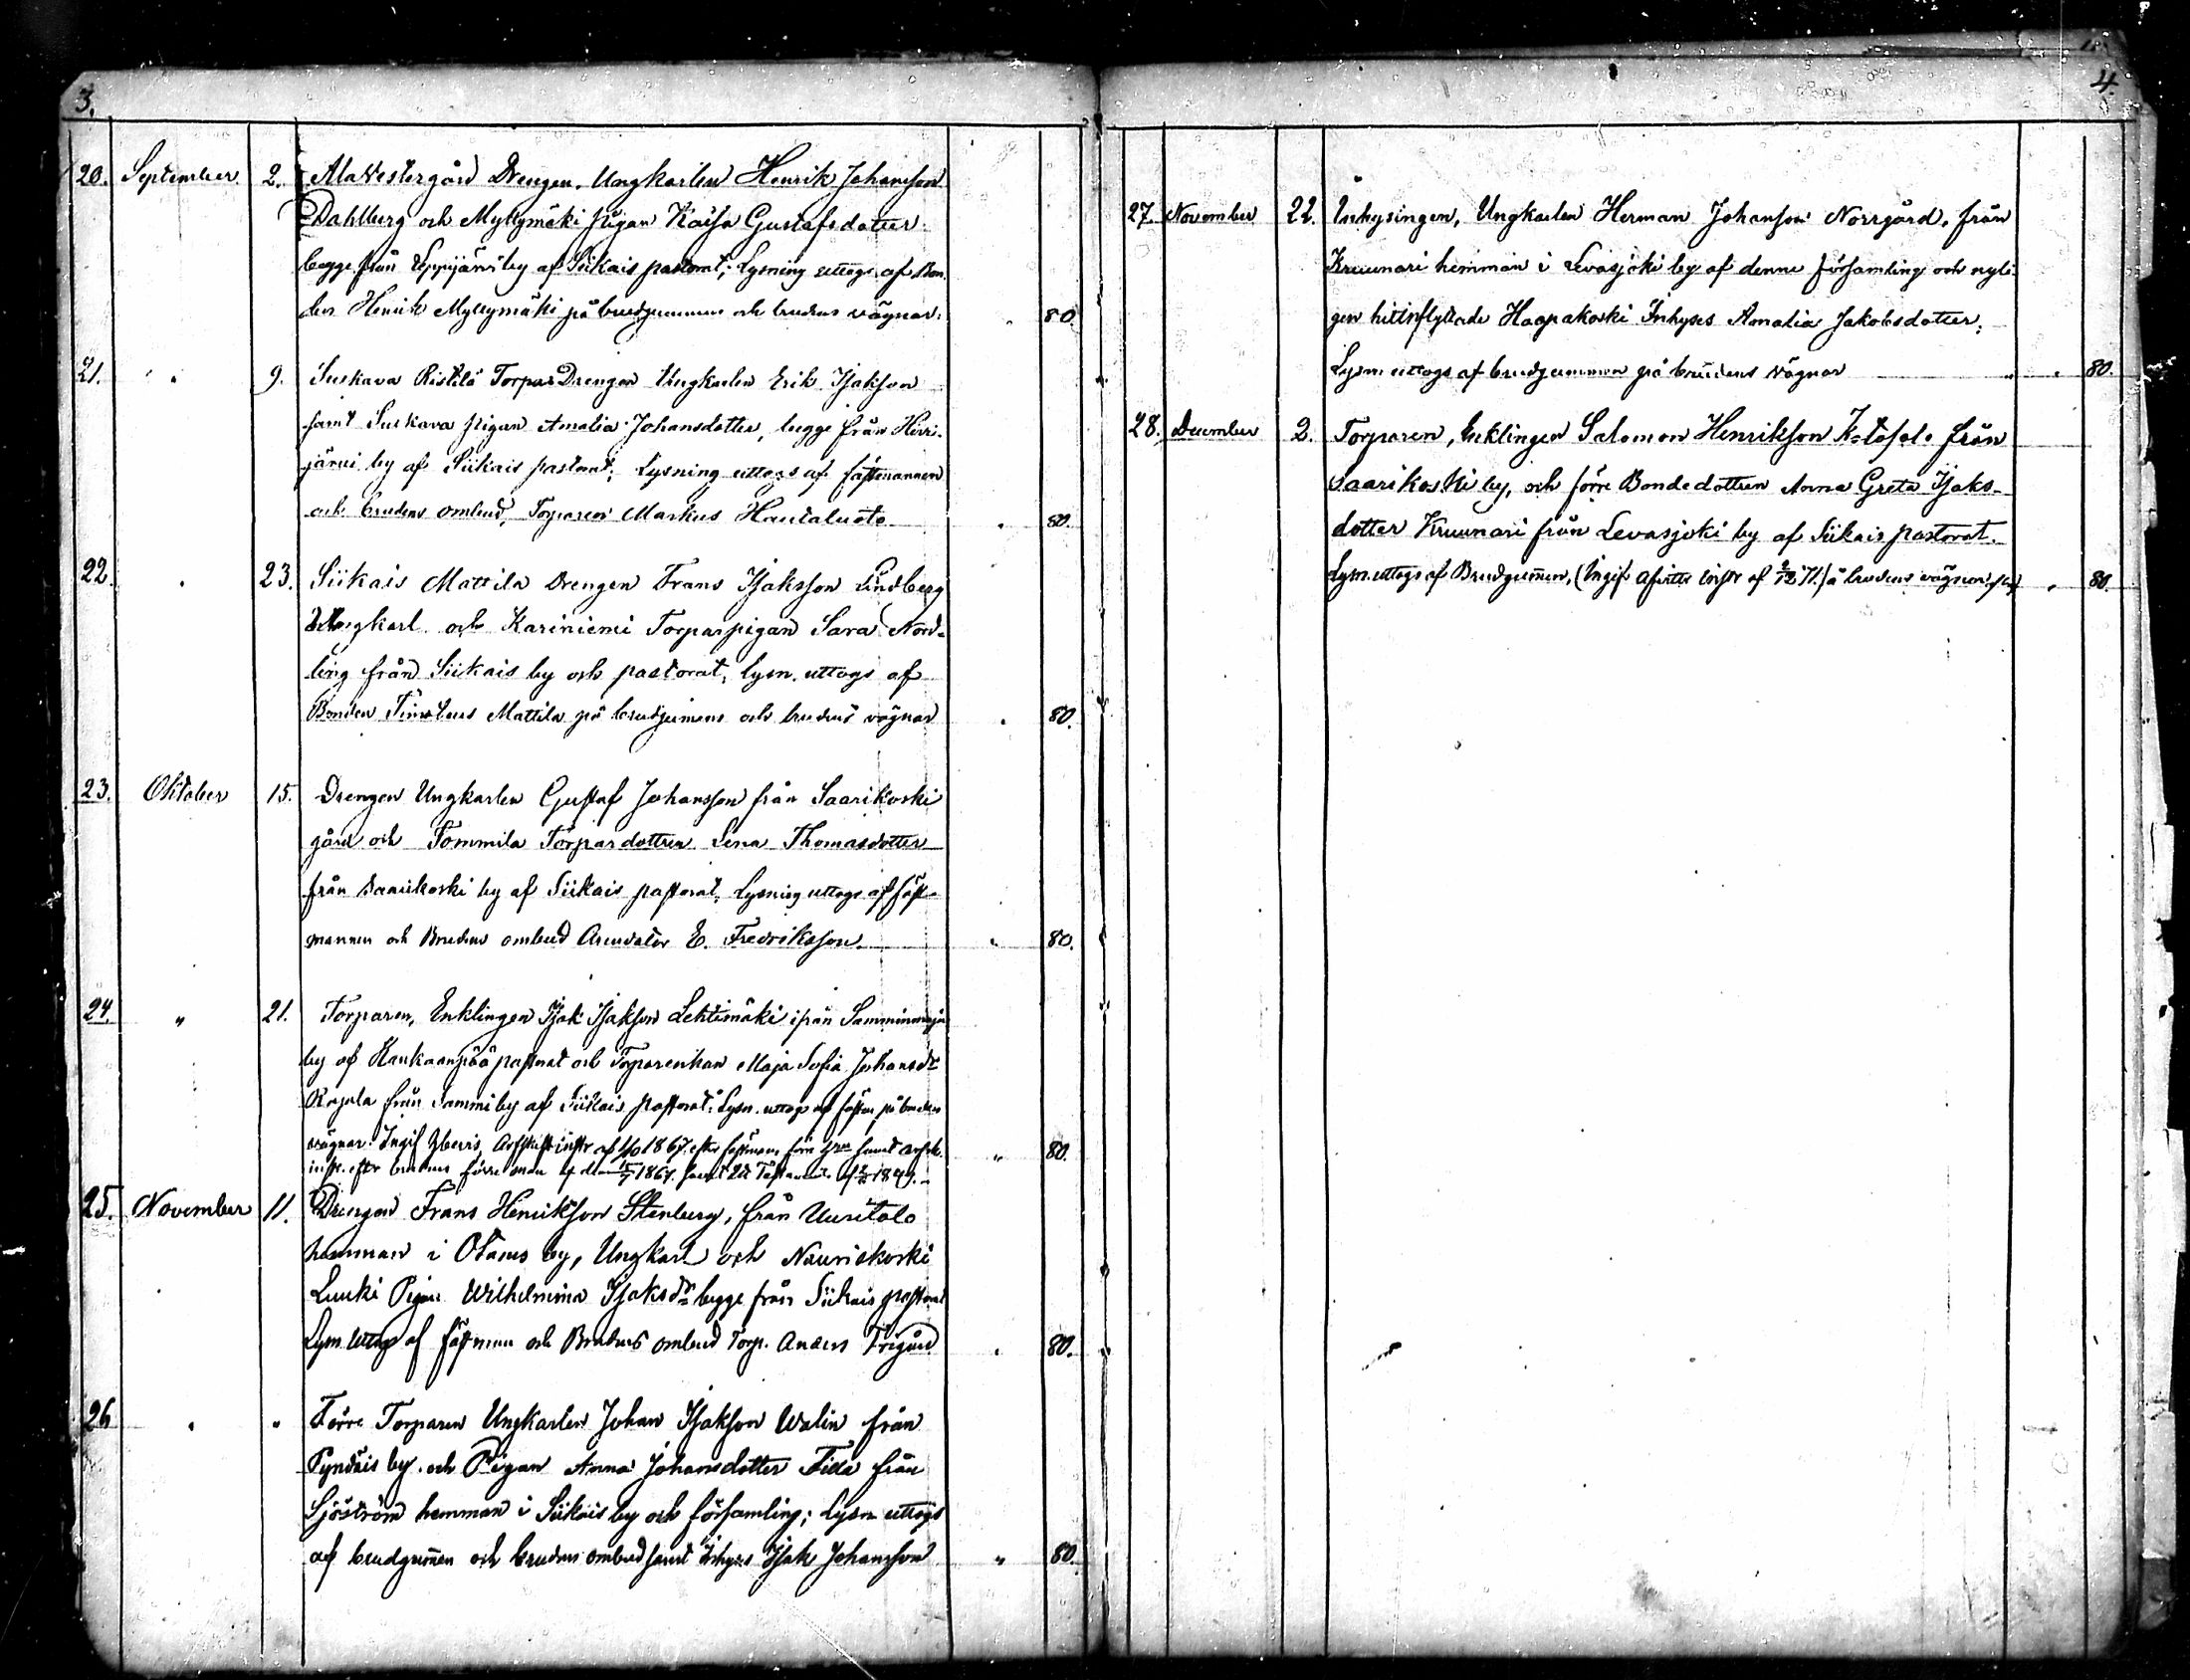 3.
20. September. 2. AlaWestergård Drengen, Ungkarlen Henrik Johansson
Dahlberg och Myllymäki pigan Kaisa Gustafsdotter
begge från Leppijärvi by af Siikais pastorat; Lysning uttogs af Bon-
den Henrik Myllymäki på brudgummens och brudens vägnar. " 80.
21. " 9. Suskava Ristilä Torpar Drengen Ungkarlen Erik Isaksson
samt Suskava pigan Amalia Johansdotter, begge från Hirvi-
järvi by af Siikais pastorat; Lysning uttogs af fästemannen
och brudens ombud, Torparen Markus Hautaluoto " 80.
22. " 23. Siikais Mattila Drengen Frans Isaksson Lindberg
Ungkarl och Kariniemi Torparpigan Sara Nord-
ling från Siikais by och pastorat, Lysn. uttogs af
Bonden Timoteus Mattila på brudgumens och brudens vägnar " 80.
23. Oktober 15. Drengen Ungkarlen Gustaf Johansson från Saarikoski
gård och Tommila Torpardottren Lena Thomasdotter
från Saarikoski by af Siikais pastorat, Lysning uttogs af fäst-
mannen och Brudens ombud Arendator E. Fredriksson. " 80.
24. " 21. Torparen, Enklingen Isak Isaksson Lehtimäki ifrån
by af Kankaanpää pastorat och Torparenkan Maja Sofia Johansdr
Rajala från Sammi by af Siikais pastorat. Lysn. uttogs af fästm. på brudens
vägnar. Ingif. Arfskift instr af 1867 efter fästmans förra samt arfsk.
instr. eftr brudens förre man af den 1867. samt 1849. " 80.
25. November 11. Drengen Frans Henriksson Stenberg, från Uusitalo
hemman i Otamo by, Ungkarl och Nauriskoski
Luuki Pigan Wilhelmina Isaksdr begge från Siikais pastorat
Lysn. uttogs af fästman och Brudens ombud Torp. Anders Frigård " 80.
26 " " Förre Torparen Ungkarlen Johan Isaksson Walin från
Pyndäis by och Pigan Anna Johansdotter Filla från
Sjöström hemman i Siikais by och församling; Lysn uttogs
af brudgumen och brudens ombud samt Inhyses Isak Johansson " 80.
4.
27. November 22. Inhysingen, Ungkarlen Herman Johansson Norrgård, från
Kruunari hemman i Levasjoki by af denne församling och nyli-
gen hitinflyttade Haapakoski Inhyses Amalia Jakobsdotter;
Lysn. uttogs af brudgummen på brudens vägnar " 80.
28. December 2. Torparen, Enklingen Salomon Henriksson från
Saarikoski by, och förre Bondedottren Anna Greta Isaks-
dotter Kruunari från Levasjoki by af Siikais pastorat.
Lysn. uttogs af Brudgumen, (Ingif. instr af på brudens vägnar " 80.